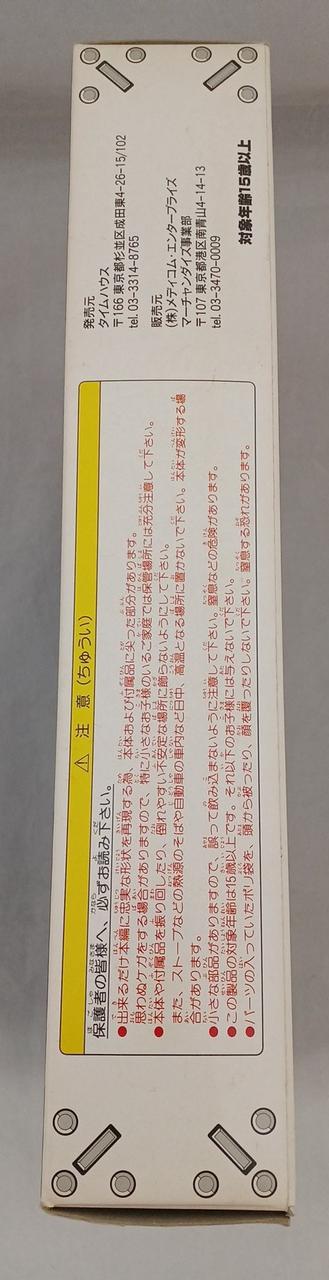 ⚠ 注 意 (ちゅうい)
保護者の皆様へ、必ずお読み下さい。
●出来るだけ本編に忠実な形状を再現する為、本体および付属品に尖った部分があります。
思わぬケガをする場合がありますので、特に小さなお子様のいるご家庭では保管場所には充分注意して下さい。
●本体や付属品を振り回したり、倒れやすい不安定な場所に飾らないようにして下さい。
また、ストーブなどの熱源のそばや自動車の車内など日中、高温となる場所に置かないで下さい。本体が変形する場
合があります。
●小さな部品がありますので、誤って飲み込まないように注意して下さい。窒息などの危険があります。
●この製品の対象年齢は15歳以上です。それ以下のお子様には与えないで下さい。
●パーツの入っていたポリ袋を、頭から被ったり、顔を覆ったりしないで下さい。窒息する恐れがあります。
発売元
タイムハウス
〒166 東京都杉並区成田東4-26-15/102
tel. 03-3314-8765
販売元
(株)メディコム・エンタープライズ
マーチャンダイズ事業部
〒107 東京都港区南青山4-14-13
tel. 03-3470-0009
対象年齢15歳以上